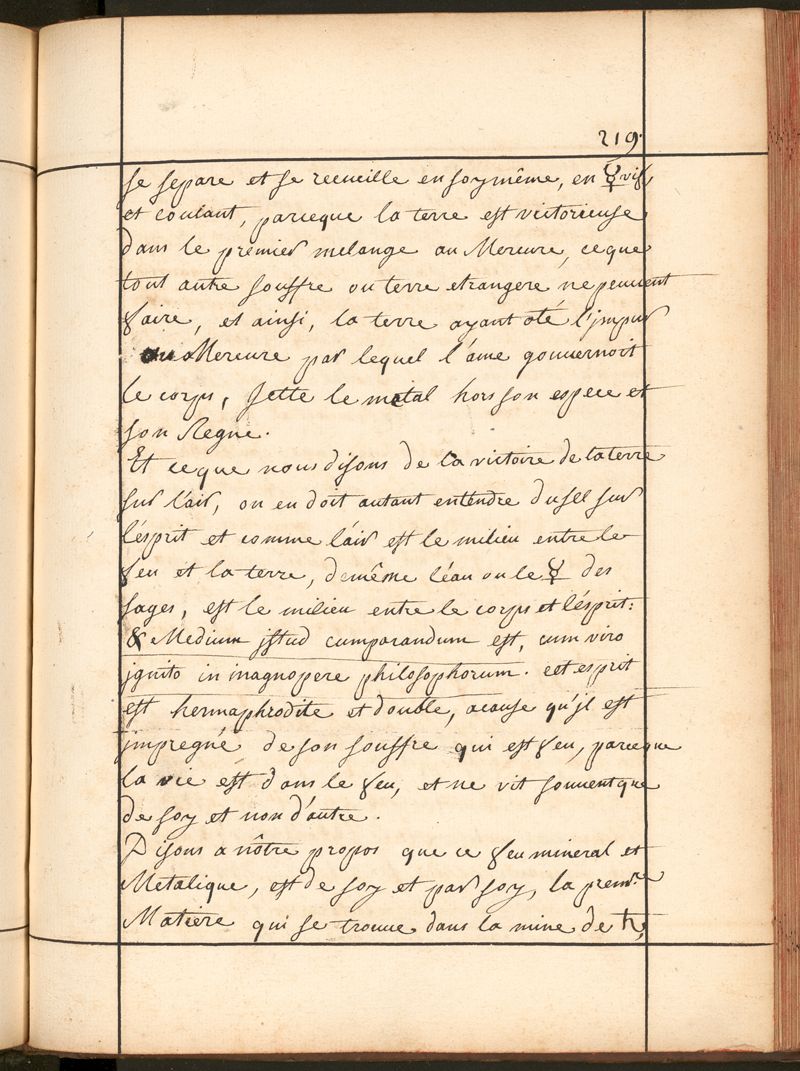 219.
se separe et se recueille en soy même, en ☿ vif,
et coulant, parceque la terre est victorieuse
dans le premier melange au Mercure, ce que
tout autre souffre ou terre etrangere ne peuvent
faire, et ainsi, la terre ayant oté l'jmpur
au Mercure par lequel l'ame gouvernoit
le corps, Jette le metal hors son espece et
son Regne.
Et ce que nous disons de la victoire de la terre
sur l'air, on en doit autant entendre du sel sur
l'ésprit et comme l'air est le milieu entre le
feu et la terre, demême l'éau ou le ☿ des
sages, est le milieu entre le corps et l'ésprit:
& Medium jstud cumparandum est, cum viro
jgnito in magnopere philosophorum. cet esprit
est hermaphrodite et double, acause qu'jl est
jmpregné de son souffre qui est feu, parceque
la vie est dans le feu, et ne vit souvent que
de soy et non d'autre.
Disons a nôtre propos que ce feu mineral et
Metalique, est de soy et par soy, la prem.re
Matiere qui se trouve dans la mine de ♄,